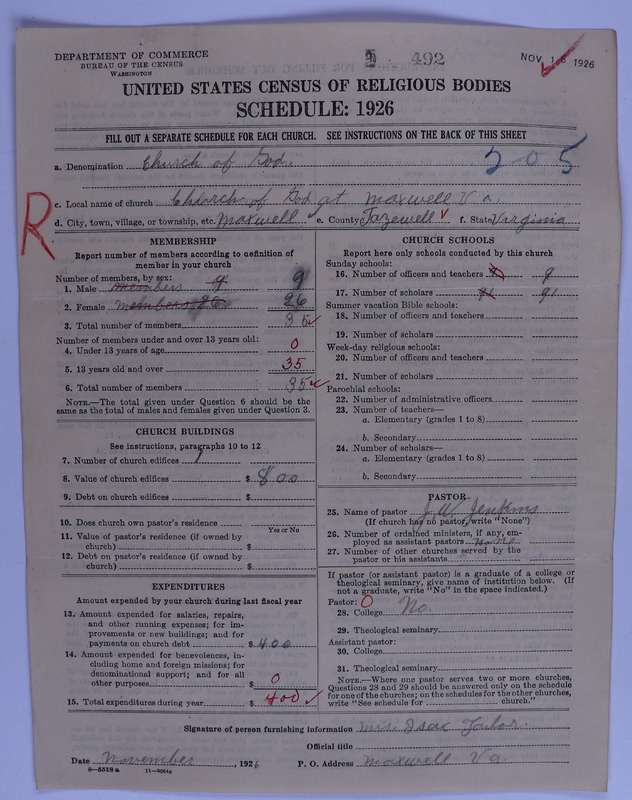 DEPARTMENT OF COMMERCE
BUREAU OF THE CENSUS
WASHINGTON
492
NOV 1 6 1926
UNITED STATES CENSUS OF RELIGIOUS BODIES
SCHEDULE: 1926
FILL OUT A SEPARATE SCHEDULE FOR EACH CHURCH. SEE INSTRUCTIONS ON THE BACK OF THIS SHEET
a. Denomination Church of God.
205
c. Local name of church Church of God at Maxwell Va.
d. City, town, village, or township, etc. Maxwell e. County Tazewell f. State Virginia
R
MEMBERSHIP
Report number of members according to definition of
member in your church
Number of members, by sex:
1. Male members 9 9
2. Female members 26 26
3. Total number of members 35
Number of members under and over 13 years old:
4. Under 13 years of age 0
5. 13 years old and over 35
6. Total number of members 35
NOTE.—The total given under Question 6 should be the
same as the total of males and females given under Question 3.
CHURCH BUILDINGS
See instructions, paragraphs 10 to 12
7. Number of church edifices 1
8. Value of church edifices $ 800
9. Debt on church edifices $
10. Does church own pastor's residence
Yes or No
11. Value of pastor's residence (if owned by
church) $
12. Debt on pastor's residence (if owned by
church) $
EXPENDITURES
Amount expended by your church during last fiscal year
13. Amount expended for salaries, repairs,
and other running expenses; for im-
provements or new buildings; and for
payments on church debt $ 400
14. Amount expended for benevolences, in-
cluding home and foreign missions; for
denominational support; and for all
other purposes $ 0
15. Total expenditures during year $ 400
CHURCH SCHOOLS
Report here only schools conducted by this church
Sunday schools:
16. Number of officers and teachers 9
17. Number of scholars 91
Summer vacation Bible schools:
18. Number of officers and teachers
19. Number of scholars
Week-day religious schools:
20. Number of officers and teachers
21. Number of scholars
Parochial schools:
22. Number of administrative officers
23. Number of teachers—
a. Elementary (grades 1 to 8)
b. Secondary
24. Number of scholars—
a. Elementary (grades 1 to 8)
b. Secondary
PASTOR
25. Name of pastor J. W. Jenkins
(If church has no pastor, write "None")
26. Number of ordained ministers, if any, em-
ployed as assistant pastors None
27. Number of other churches served by the
pastor or his assistants
If pastor (or assistant pastor) is a graduate of a college or
theological seminary, give name of institution below. (If
not a graduate, write "No" in the space indicated.)
Pastor: 0
28. College No.
29. Theological seminary
Assistant pastor:
30. College
31. Theological seminary
NOTE.—Where one pastor serves two or more churches,
Questions 28 and 29 should be answered only on the schedule
for one of the churches; on the schedules for the other churches,
write "See schedule for church."
Signature of person furnishing information Mrs. Isac Taylor.
Official title
Date November, 1926 P. O. Address Maxwell Va.
8—5518 a 11—9054a